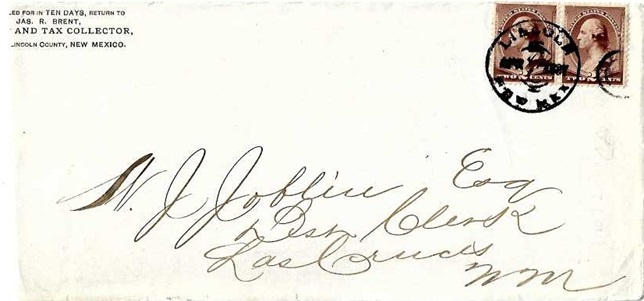 LED FOR IN TEN DAYS, RETURN TO
JAS. R. BRENT,
AND TAX COLLECTOR,
LINCOLN COUNTY, NEW MEXICO.
LINCOLN
NEW MEX
TWO CENTS
TWO CENTS
W. J. Joblin Esq
Clerk
Las Cruces
NM